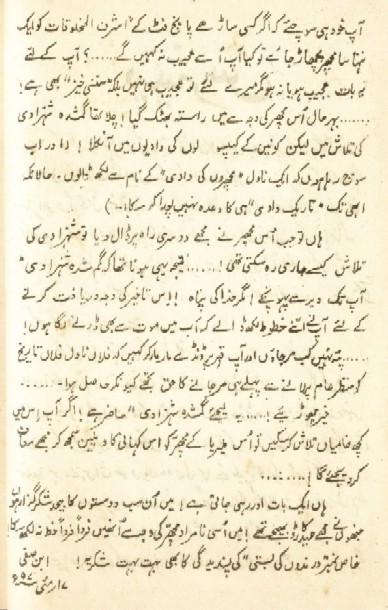 آپ خود ہی سوچئے کہ اگر کسی ساڑھے پانچ فٹ کے "اشرف المخلوقات کو ایک
ننھا سا مچھر پچھاڑ جائے تو کیا آپ اُسے عجیب نہ کہیں گے ......؟ آپ کے لئے
یہ بات عجیب ہو یا نہ ہو مگر میرے لئے تو عجیب ہی نہیں بلکہ "سنسنی خیز" بھی ہے!
....... بہرحال اُس مچھر کی وجہ سے میں راستہ بھٹک گیا! چلا تھا گمشدہ شہزادی
کی تلاش میں لیکن کونین کے کیپسولوں کی وادیوں میں آنکلا! اور اب
سوچ رہا ہوں کہ ایک ناول "مچھروں کی وادی" کے نام سے لکھ ڈالوں۔ حالانکہ
ابھی تک "تاریک وادی" ہی کا وعدہ نہیں پورا کرسکا۔)
ہاں تو جب اُس مچھر نے مجھے دوسری راہ پر ڈال دیا تو شہزادی کی
تلاش کیسے جاری رہ سکتی تھی! ...... نتیجہ یہی ہونا تھا کہ گم شدہ شہزادی"
آپ تک دیر سے پہونچے! مگر خدا کی پناہ! اِس تاخیر کی وجہ دریافت کرنے
کے لئے آپ نے اتنے خطوط لکھ ڈالے کہ اب میں موت سے بھی ڈرنے لگا ہوں!
..... پتہ نہیں کب مرجاؤں اور آپ قبر پر ڈنڈے مار مار کر کہیں کہ فلاں ناول فلاں تاریخ
کو منظر عام پر لانے سے پہلے ہی مرجانے کا حق تجھے کیونکر حاصل ہوا.......
خیر چھوڑیئے! ..... یہ لیجئے گمشدہ شہزادی" حاضر ہے! اگر آپ اِس میں
کچھ خامیاں تلاش کرسکیں تو اُس ملیریا کے مچھر کو اس کہانی کا ویلین سمجھ کر مجھے معاف
کردیجئے گا! ........
ہاں ایک بات اور رہی جاتی ہے! میں اُن سب دوستوں کا بیحد شکر گزار ہوں
جنہوں نے مجھے عید کارڈ بھیجے تھے! میں اُسی نامراد مچھر کی وجہ سے اُنھیں فرداً فرداً خط نہ لکھ سکا
خاص نمبر "درندوں کی بستی" کی پسندیدگی کا بھی بہت بہت شکریہ! ابن صفی
۱۷ر مئی ۵۷ء